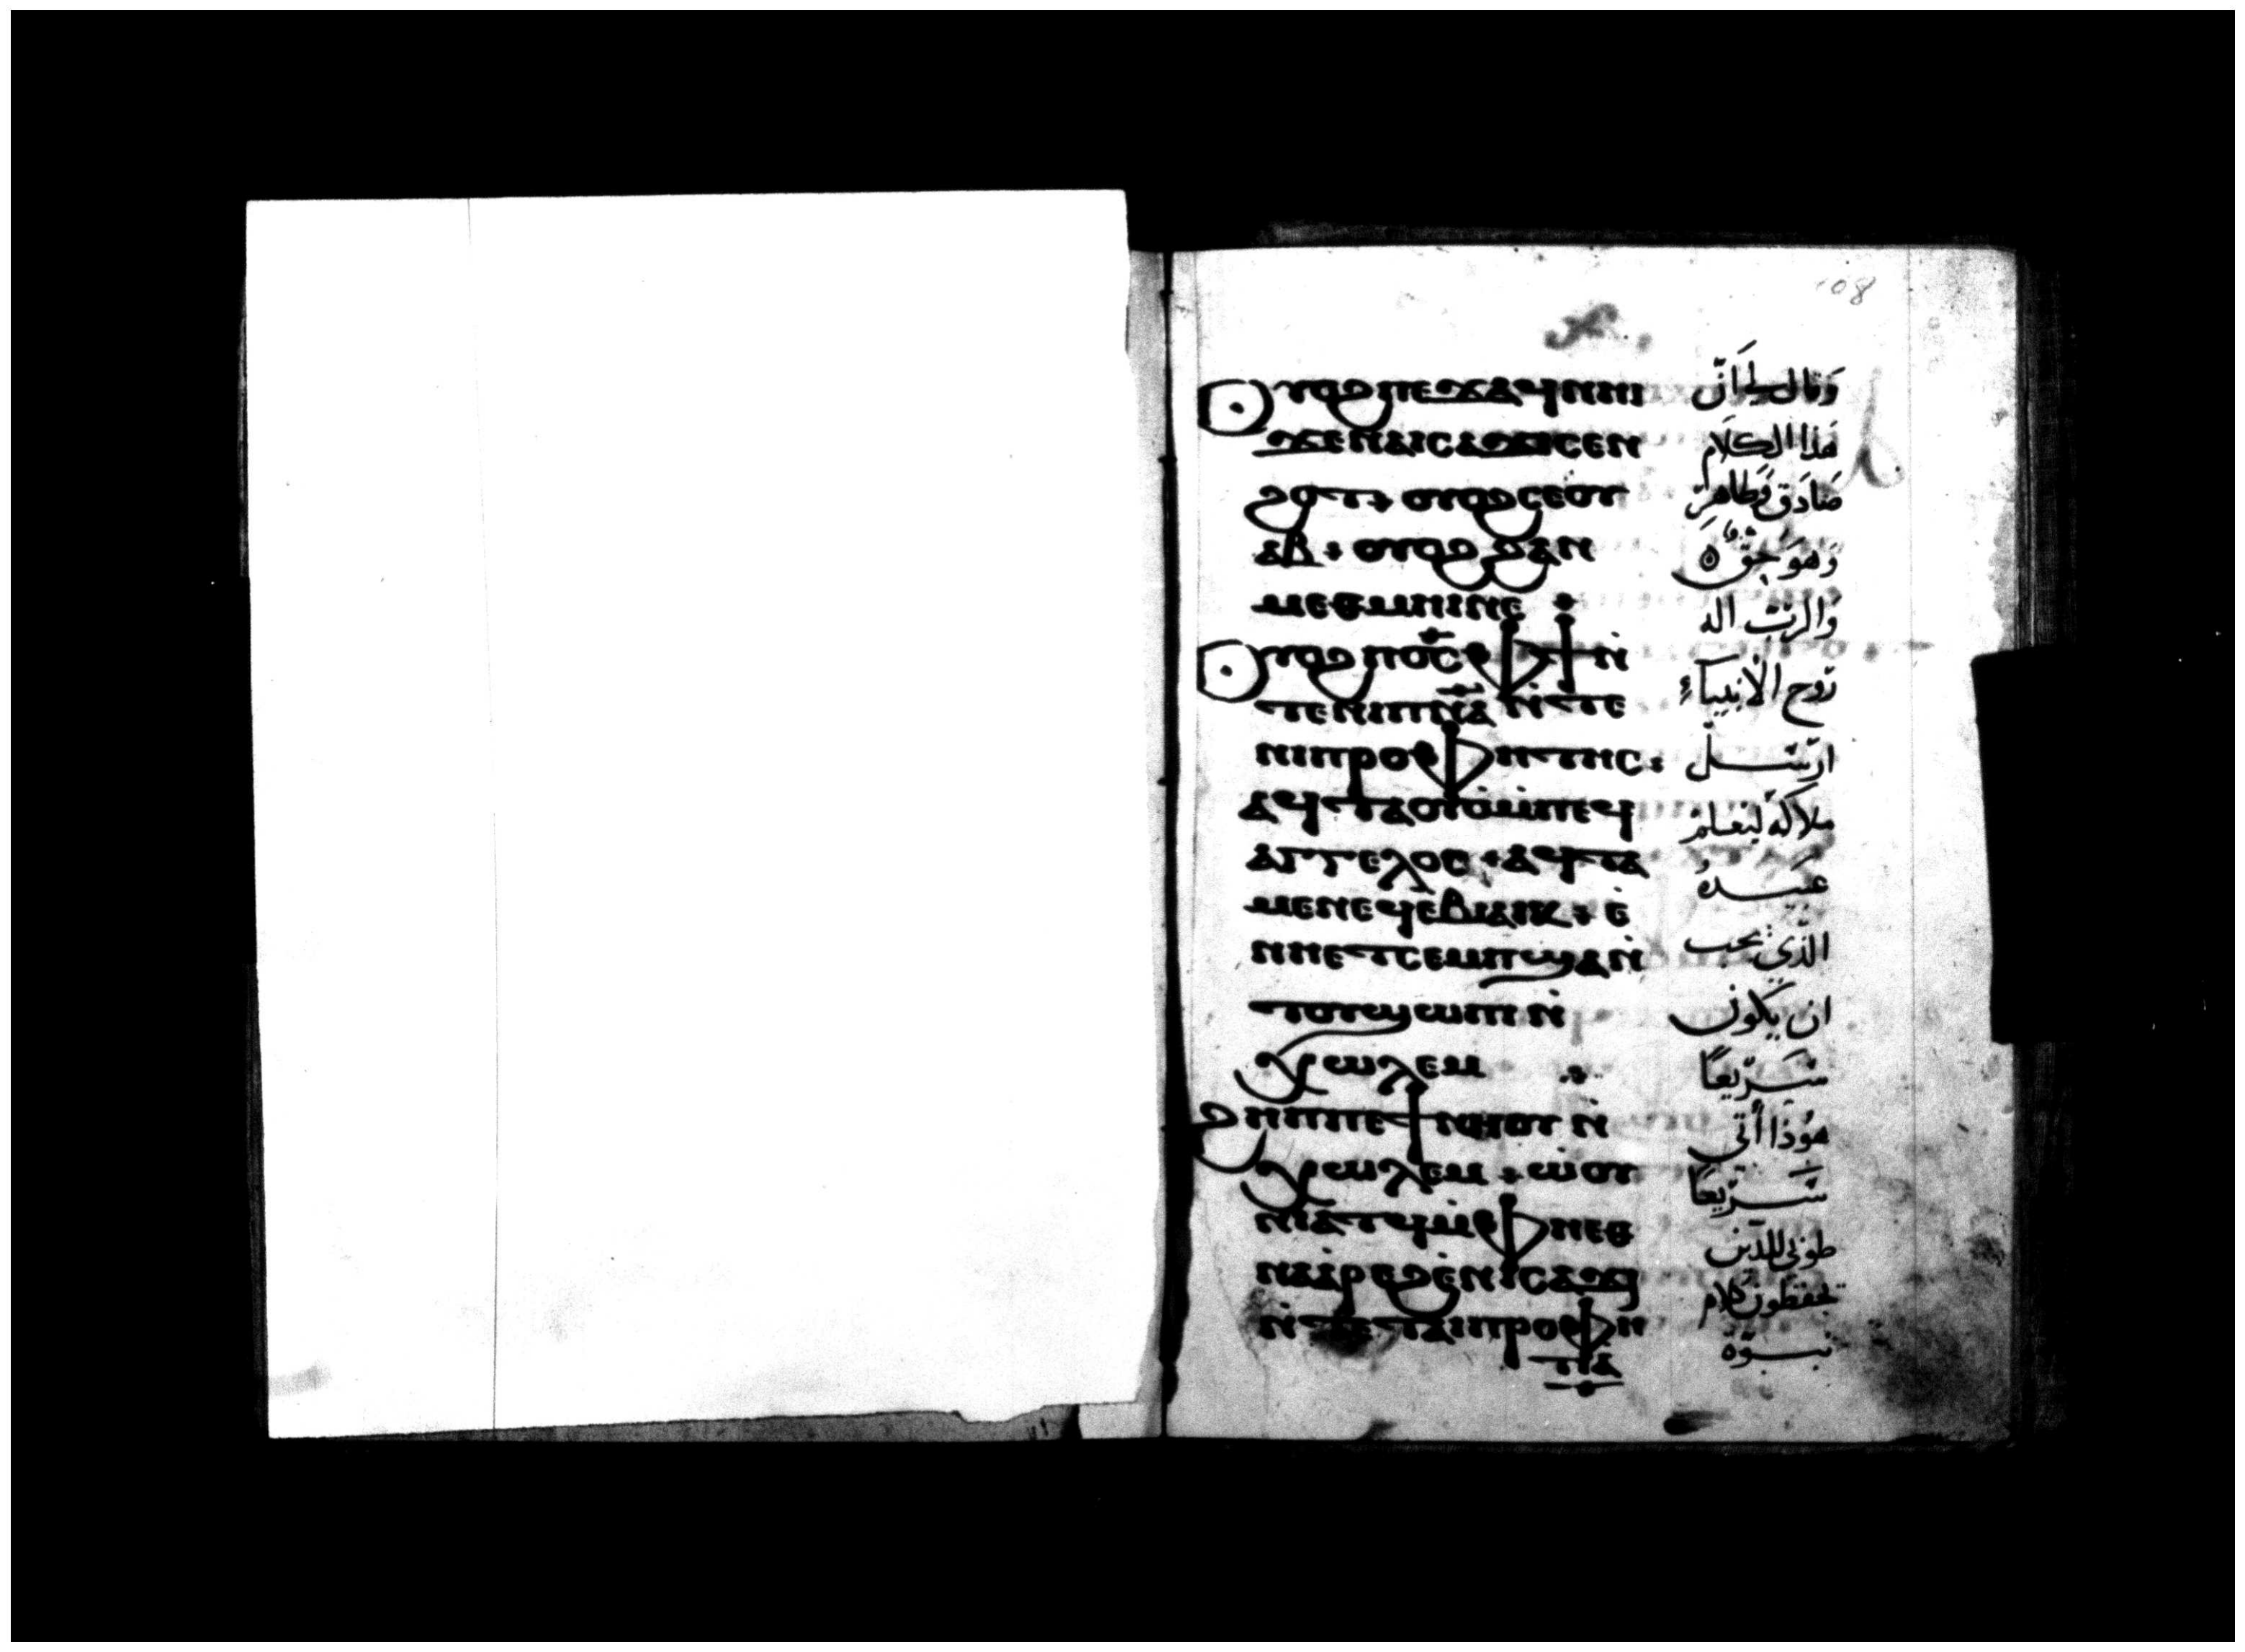 108
ⲟⲩⲟϩ ⲡⲉϫⲁϥ ⲛⲏⲓ
ϫⲉ ⲛⲁⲓⲥⲁϫⲓ ⲥⲉⲛ
ϩⲟⲧ ⲟⲩⲟϩ ⲥⲉⲟⲩ
ⲁⲃ ⲟⲩⲟϩ ϩⲁⲛ
ⲙⲉⲑⲙⲏⲓ ⲛⲉ
ⲟⲩⲟϩ ⲡⲟ̅ⲥ̅ ⲫϯ ⲛ̀
ⲧⲉ ⲛⲓⲡⲛ̅ⲁ̅ ⲛ̀ⲧⲉ
ⲛⲓⲡⲣⲟⲫⲏⲧⲏⲥ
ⲁϥⲧⲁⲟⲩⲟ̀ ⲙ̀ⲡⲉϥ
ⲁⲅⲅⲉⲗⲟⲥ ⲁϥⲧⲁ
ⲙⲉ ⲛⲉϥⲉ̀ⲃⲓⲁⲓⲕ ⲉ̀
ⲛⲏⲉⲧⲥⲉⲙⲡϣⲁ ⲛ̀
ⲧⲟⲩϣⲱⲡⲓ ⲛ̀
ⲭⲱⲗⲉⲙ
ϩⲏⲡⲡⲉ ϯⲛⲏⲟⲩ ⲛ̀
ⲭⲱⲗⲉⲙ ⲱ̀ⲟⲩ
ⲛⲓⲁⲧϥ ⲙ̀ⲫⲏⲉⲑ
ⲛⲁⲁ̀ⲣⲉϩ ⲉ̀ⲛⲓⲥⲁϫⲓ
ⲛ̀ⲧⲉ ⲧⲁⲓⲡⲣⲟⲫⲏ
ⲧⲓⲁ
وَقال لِي اَنَّ
هَذا الكَلَام
صَادَق وَطاهِر
وَهوَ حَق
وَالرَبّ اله
رّوح الاَنبيَاءِ
ارّسَل
ملاكَهُ ليَعلم
عَبيدهُ
الذّي يجب
ان يَكون
سَرّيعًا
هوَذا أتى
سَرّيعًا
طوبَى للذّين
يحفظون كلام
نبوّة